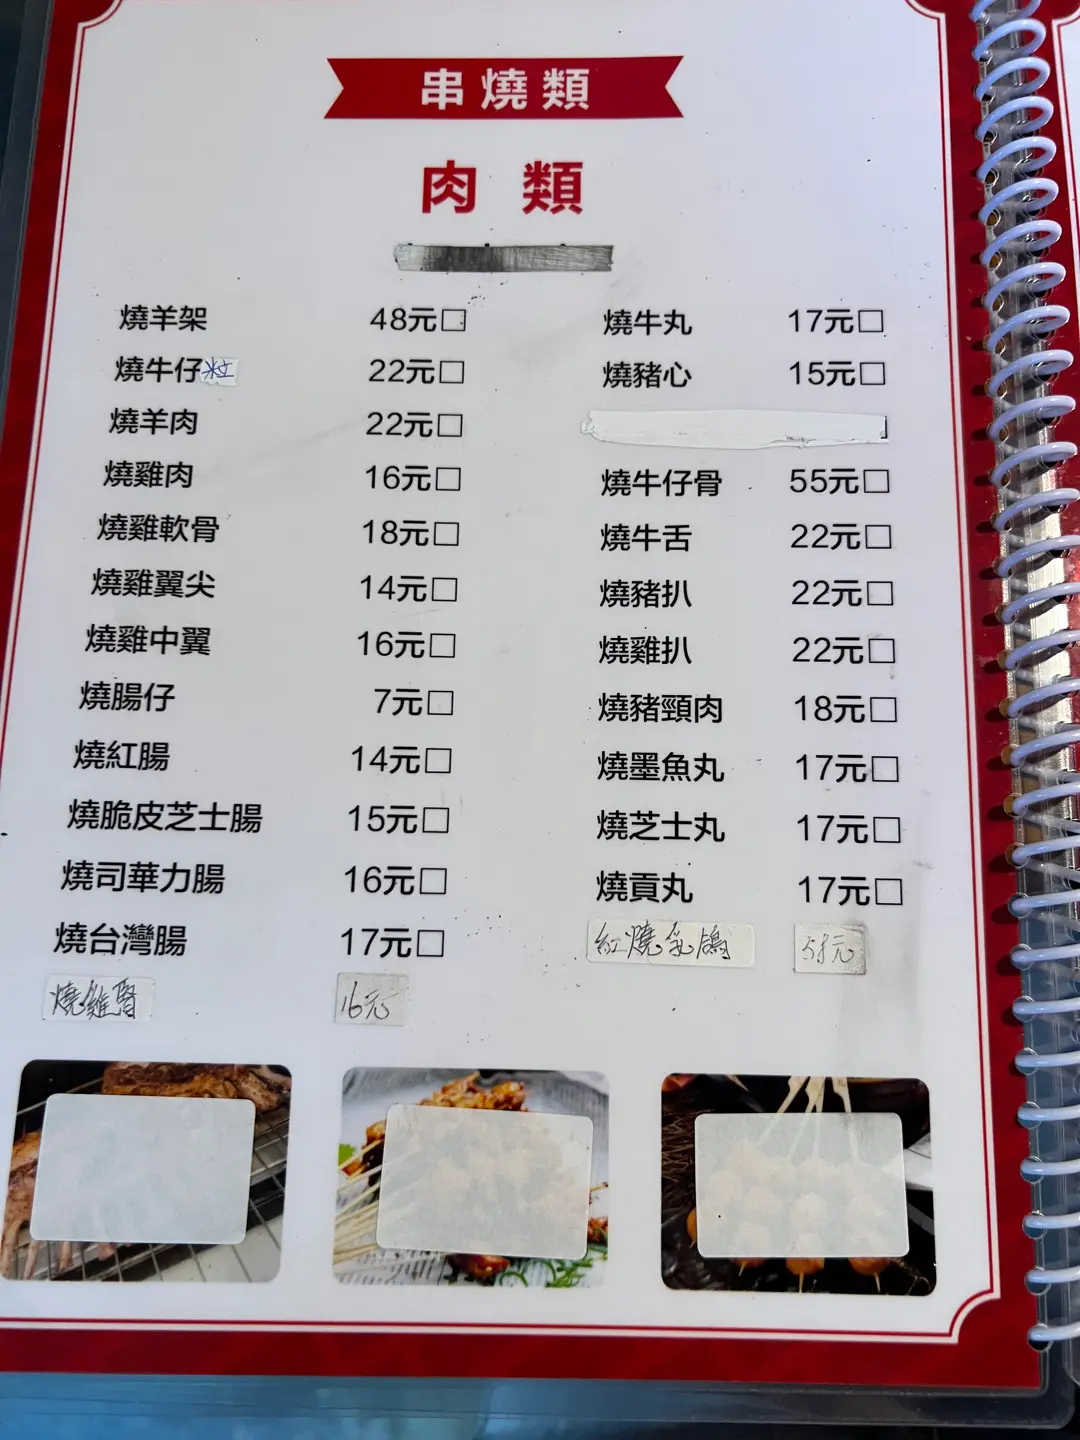 串燒類
肉類
燒羊架 48元□
燒牛仔粒 22元□
燒羊肉 22元□
燒雞肉 16元□
燒雞軟骨 18元□
燒雞翼尖 14元□
燒雞中翼 16元□
燒腸仔 7元□
燒紅腸 14元□
燒脆皮芝士腸 15元□
燒司華力腸 16元□
燒台灣腸 17元□
燒雞腎 16元
燒牛丸 17元□
燒豬心 15元□
燒牛仔骨 55元□
燒牛舌 22元□
燒豬扒 22元□
燒雞扒 22元□
燒豬頸肉 18元□
燒墨魚丸 17元□
燒芝士丸 17元□
燒貢丸 17元□
紅燒乳鴿